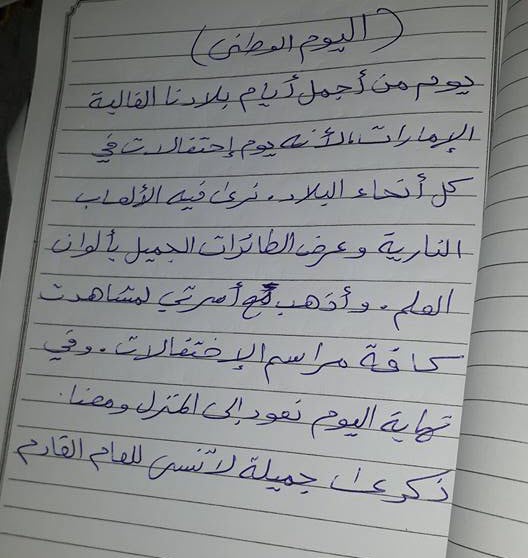 (اليوم الوطني)
يوم من أجمل أيام بلادنا الغالية
الإمارات، لأنه يوم إحتفالات في
كل أنحاء البلاد. نرى فيه الألعاب
النارية وعرض الطائرات الجميل بألوان
العلم. وأذهب مع أسرتي لمشاهدت
كافة مراسم الإحتفالات. وفي
نهاية اليوم نعود إلى المنزل ومعنا
جميلة لا تنسى للعام القادم